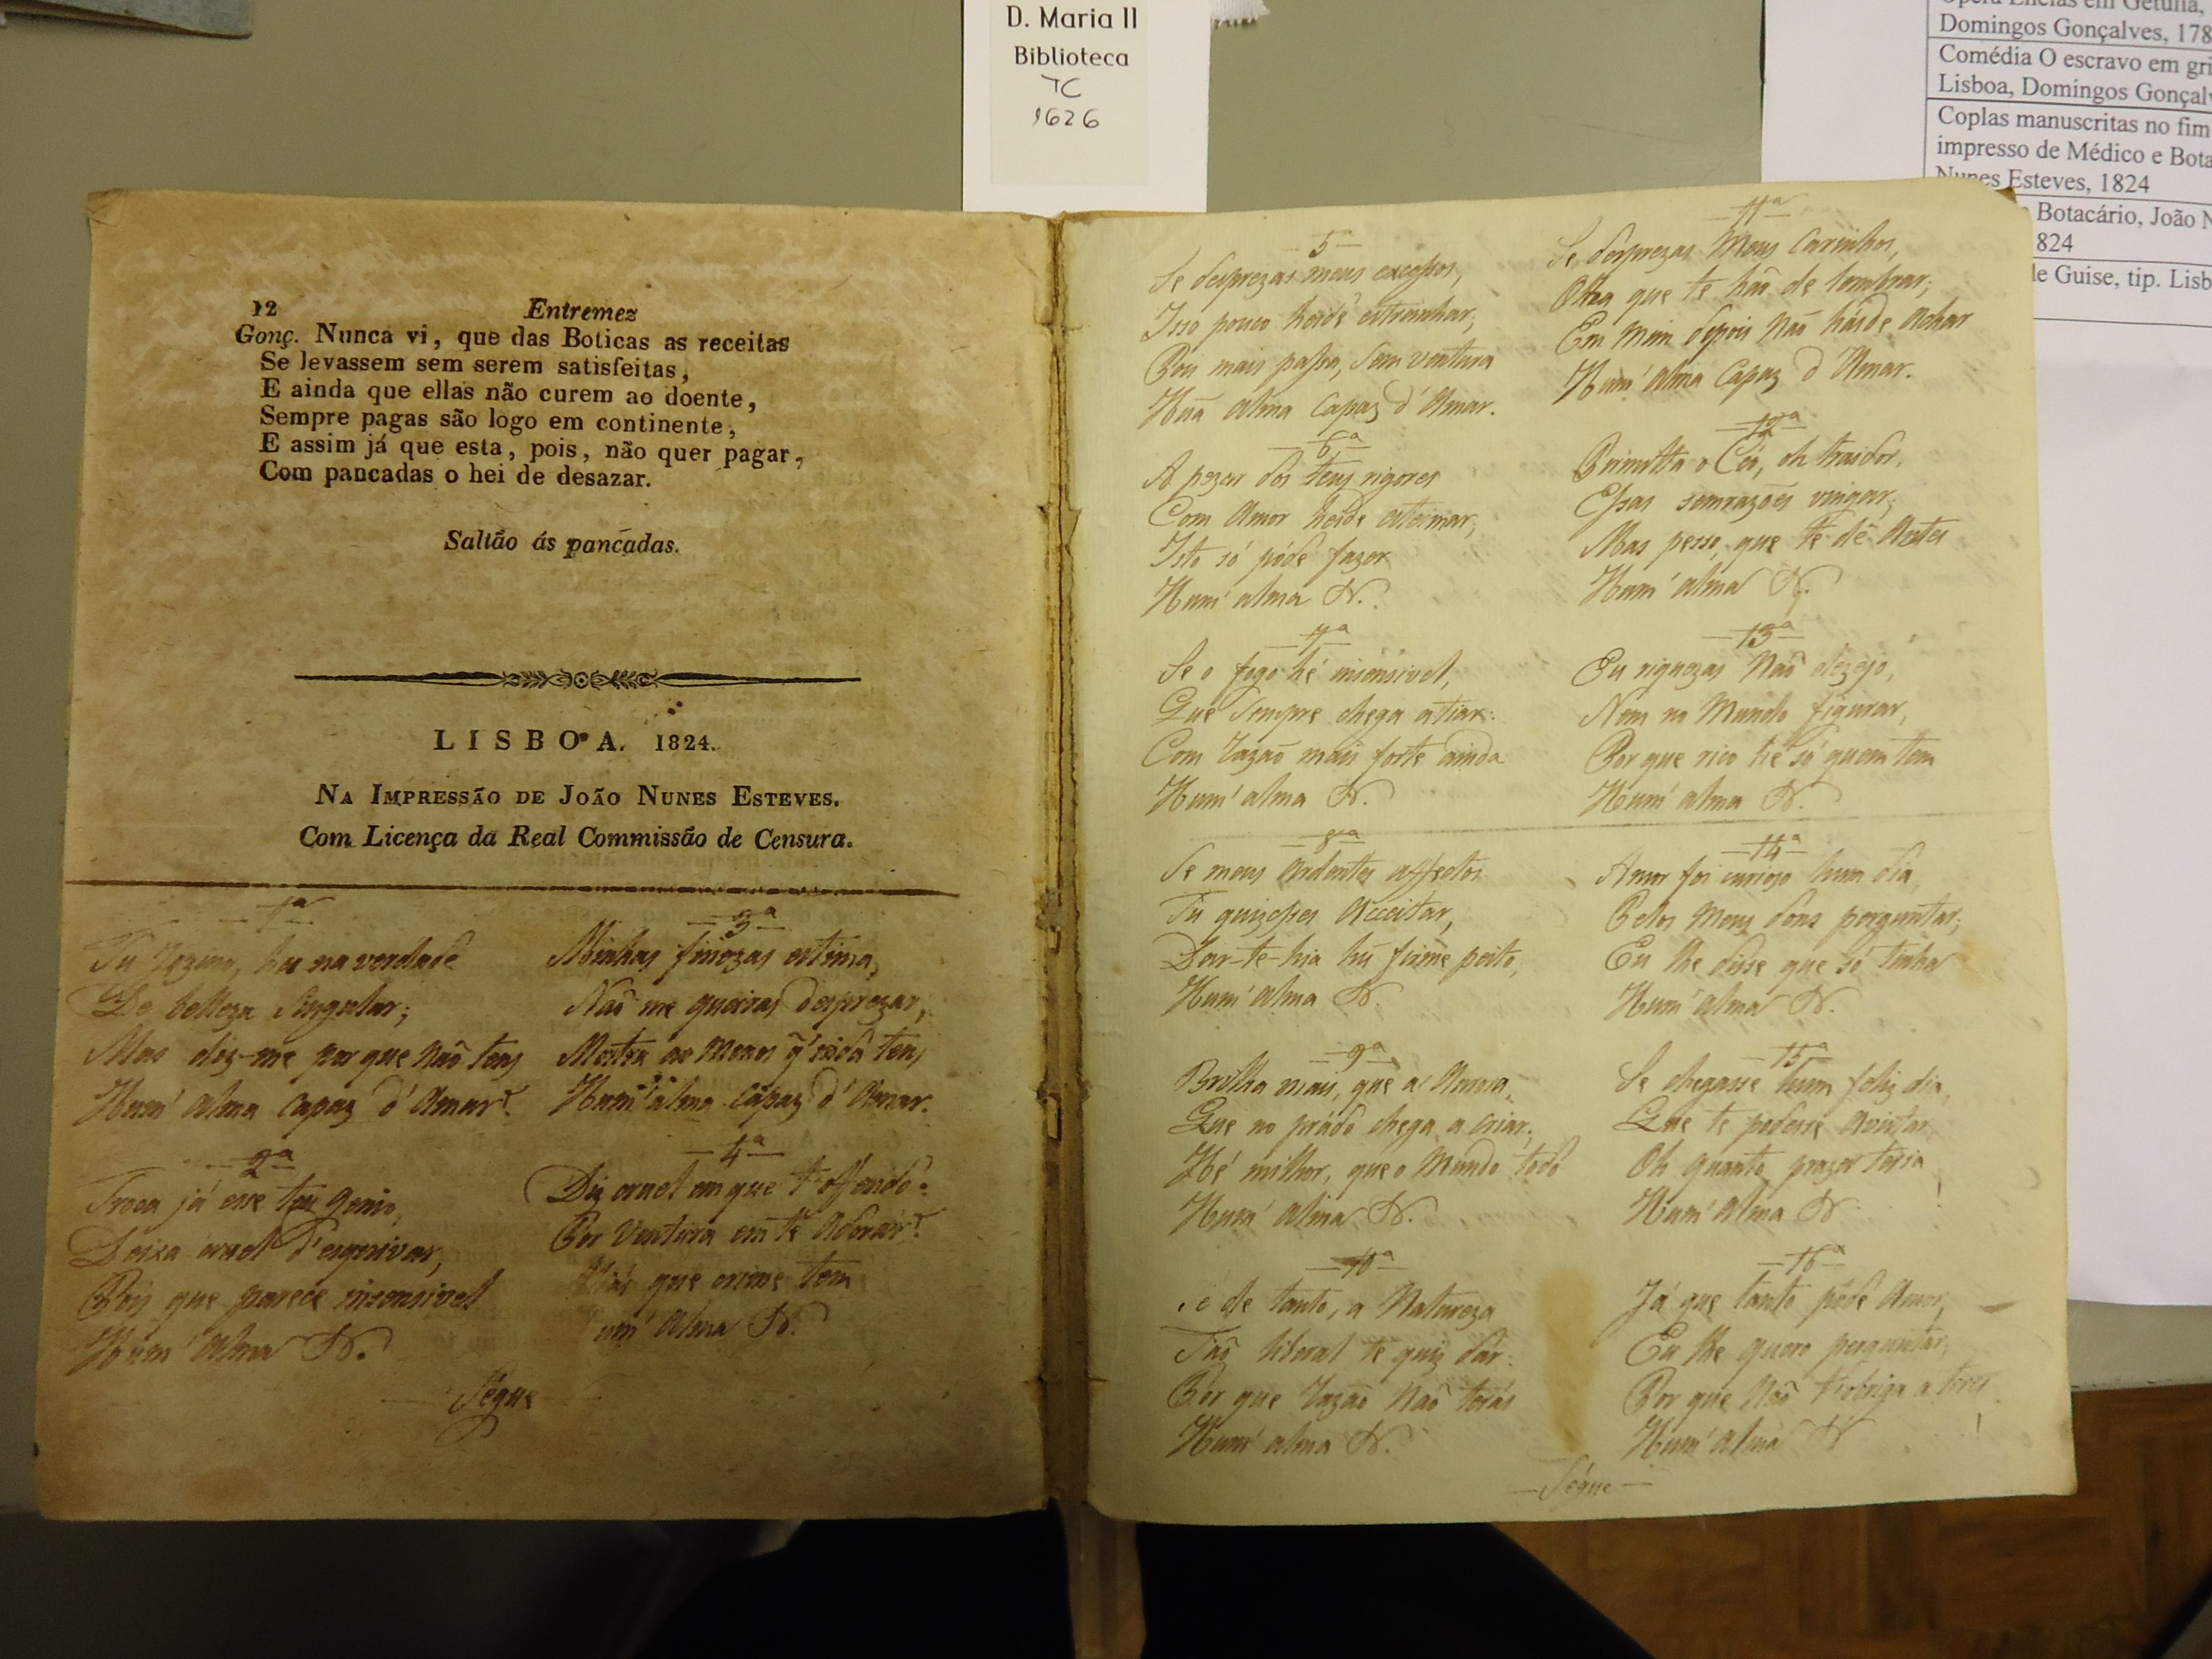 D. Maria II
Biblioteca
TC
1626
Domingos Gonçalves, 178
Comédia O escravo em gri
Lisboa, Domingos Gonçalv
Coplas manuscritas no fim
impresso de Médico e Bota
Nunes Esteves, 1824
Botacário, João N
824
de Guise, tip. Lisb
12
Entremez
Gonç. Nunca vi, que das Boticas as receitas
Se levassem sem serem satisfeitas,
E ainda que ellas não curem ao doente,
Sempre pagas são logo em continente,
E assim já que esta, pois, não quer pagar,
Com pancadas o hei de desazar.
Saltão ás pancadas.
LISBOA. 1824.
NA IMPRESSÃO DE JOÃO NUNES ESTEVES.
Com Licença da Real Commissão de Censura.
1ª
Tu na verdade
De belleza singular;
Mas diz-me por que não tens
Hum' alma capaz d'Amar?
2ª
Troca já esse teu genio,
Deixa cruel d'esquivar,
Pois que parece insensivel
Hum' alma &.
3ª
Minhas finezas estima,
Não me queiras desprezar,
Mostra ao menos q' inda tens
Hum' alma capaz d'Amar.
4ª
Diz cruel em que t'offendo?
Por ventura em te adorar?
que crime tem
um' alma &.
Segue
5
Se desprezas meus excessos,
Isso pouco heide estranhar;
Pois mais passa, sem ventura
Hũa alma capaz d'Amar.
6ª
A pezar dos teus rigores
Com Amor heide ateimar;
Isto só póde fazer
Hum' alma &.
7ª
Se o fogo hé insensivel,
Que sempre chega atiar:
Com razão mais forte ainda
Hum' alma &.
8ª
Se meus ardentes affectos
Tu quizesses acceitar,
Dar-te-hia hũ firme peito,
Hum' alma &.
9ª
Brilha mais, que a Amora,
Que no prádo chega a criar;
Hé milhor, que o Mundo todo
Hum' alma &.
10ª
e de tanto, a Natureza
Tão liberal te quiz dar:
Por que razão não terás
Hum' alma &.
11ª
Se desprezas meus carinhos,
Olha que te hão de lembrar;
Em mim depois não hásde achar
Hum' alma capaz d'Amar.
12ª
Primitta o Céo, oh traidor,
Essas semrazões vingar;
Mas pesso, que te dê antes
Hum' alma &.
13ª
Eu riquezas não dezejo,
Nem no Mundo figurar,
Por que rico hé só quem tem
Hum' alma &.
14ª
Amor foi curiozo hum dia
Pelos meus dons perguntar;
Eu lhe disse que só tinha
Hum' alma &.
15ª
Se chegasse hum feliz dia,
Que te podesse avistar
Oh quanto prazer teria
Hum' alma & !
16ª
Já que tanto póde Amor,
Eu lhe quero perguntar,
Por que não t'obriga a teres
Hum' alma & !
Segue